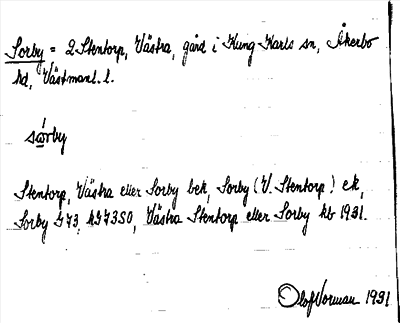 Sorby = 2 Stentorp, Västra, gård i Kung Karls sn, Åkerbo
hd, Västmanl. l.
sórby
Stentorp, Västra eller Sorby bek, Sorby (V. Stentorp) ek,
Sorby G73, kG73SO, Västra Stentorp eller Sorby kb 1931.
Olof Norman 1931